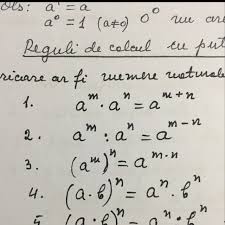 a¹ = a
a⁰ = 1 (a≠0) 0⁰ nu ar
Reguli de calcul cu put
ricare ar fi numere natural
1. aᵐ · aⁿ = aᵐ⁺ⁿ
2. aᵐ : aⁿ = aᵐ⁻ⁿ
3. (aᵐ)ⁿ = aᵐ·ⁿ
4. (a·b)ⁿ = aⁿ · bⁿ
5. (a:b)ⁿ = aⁿ